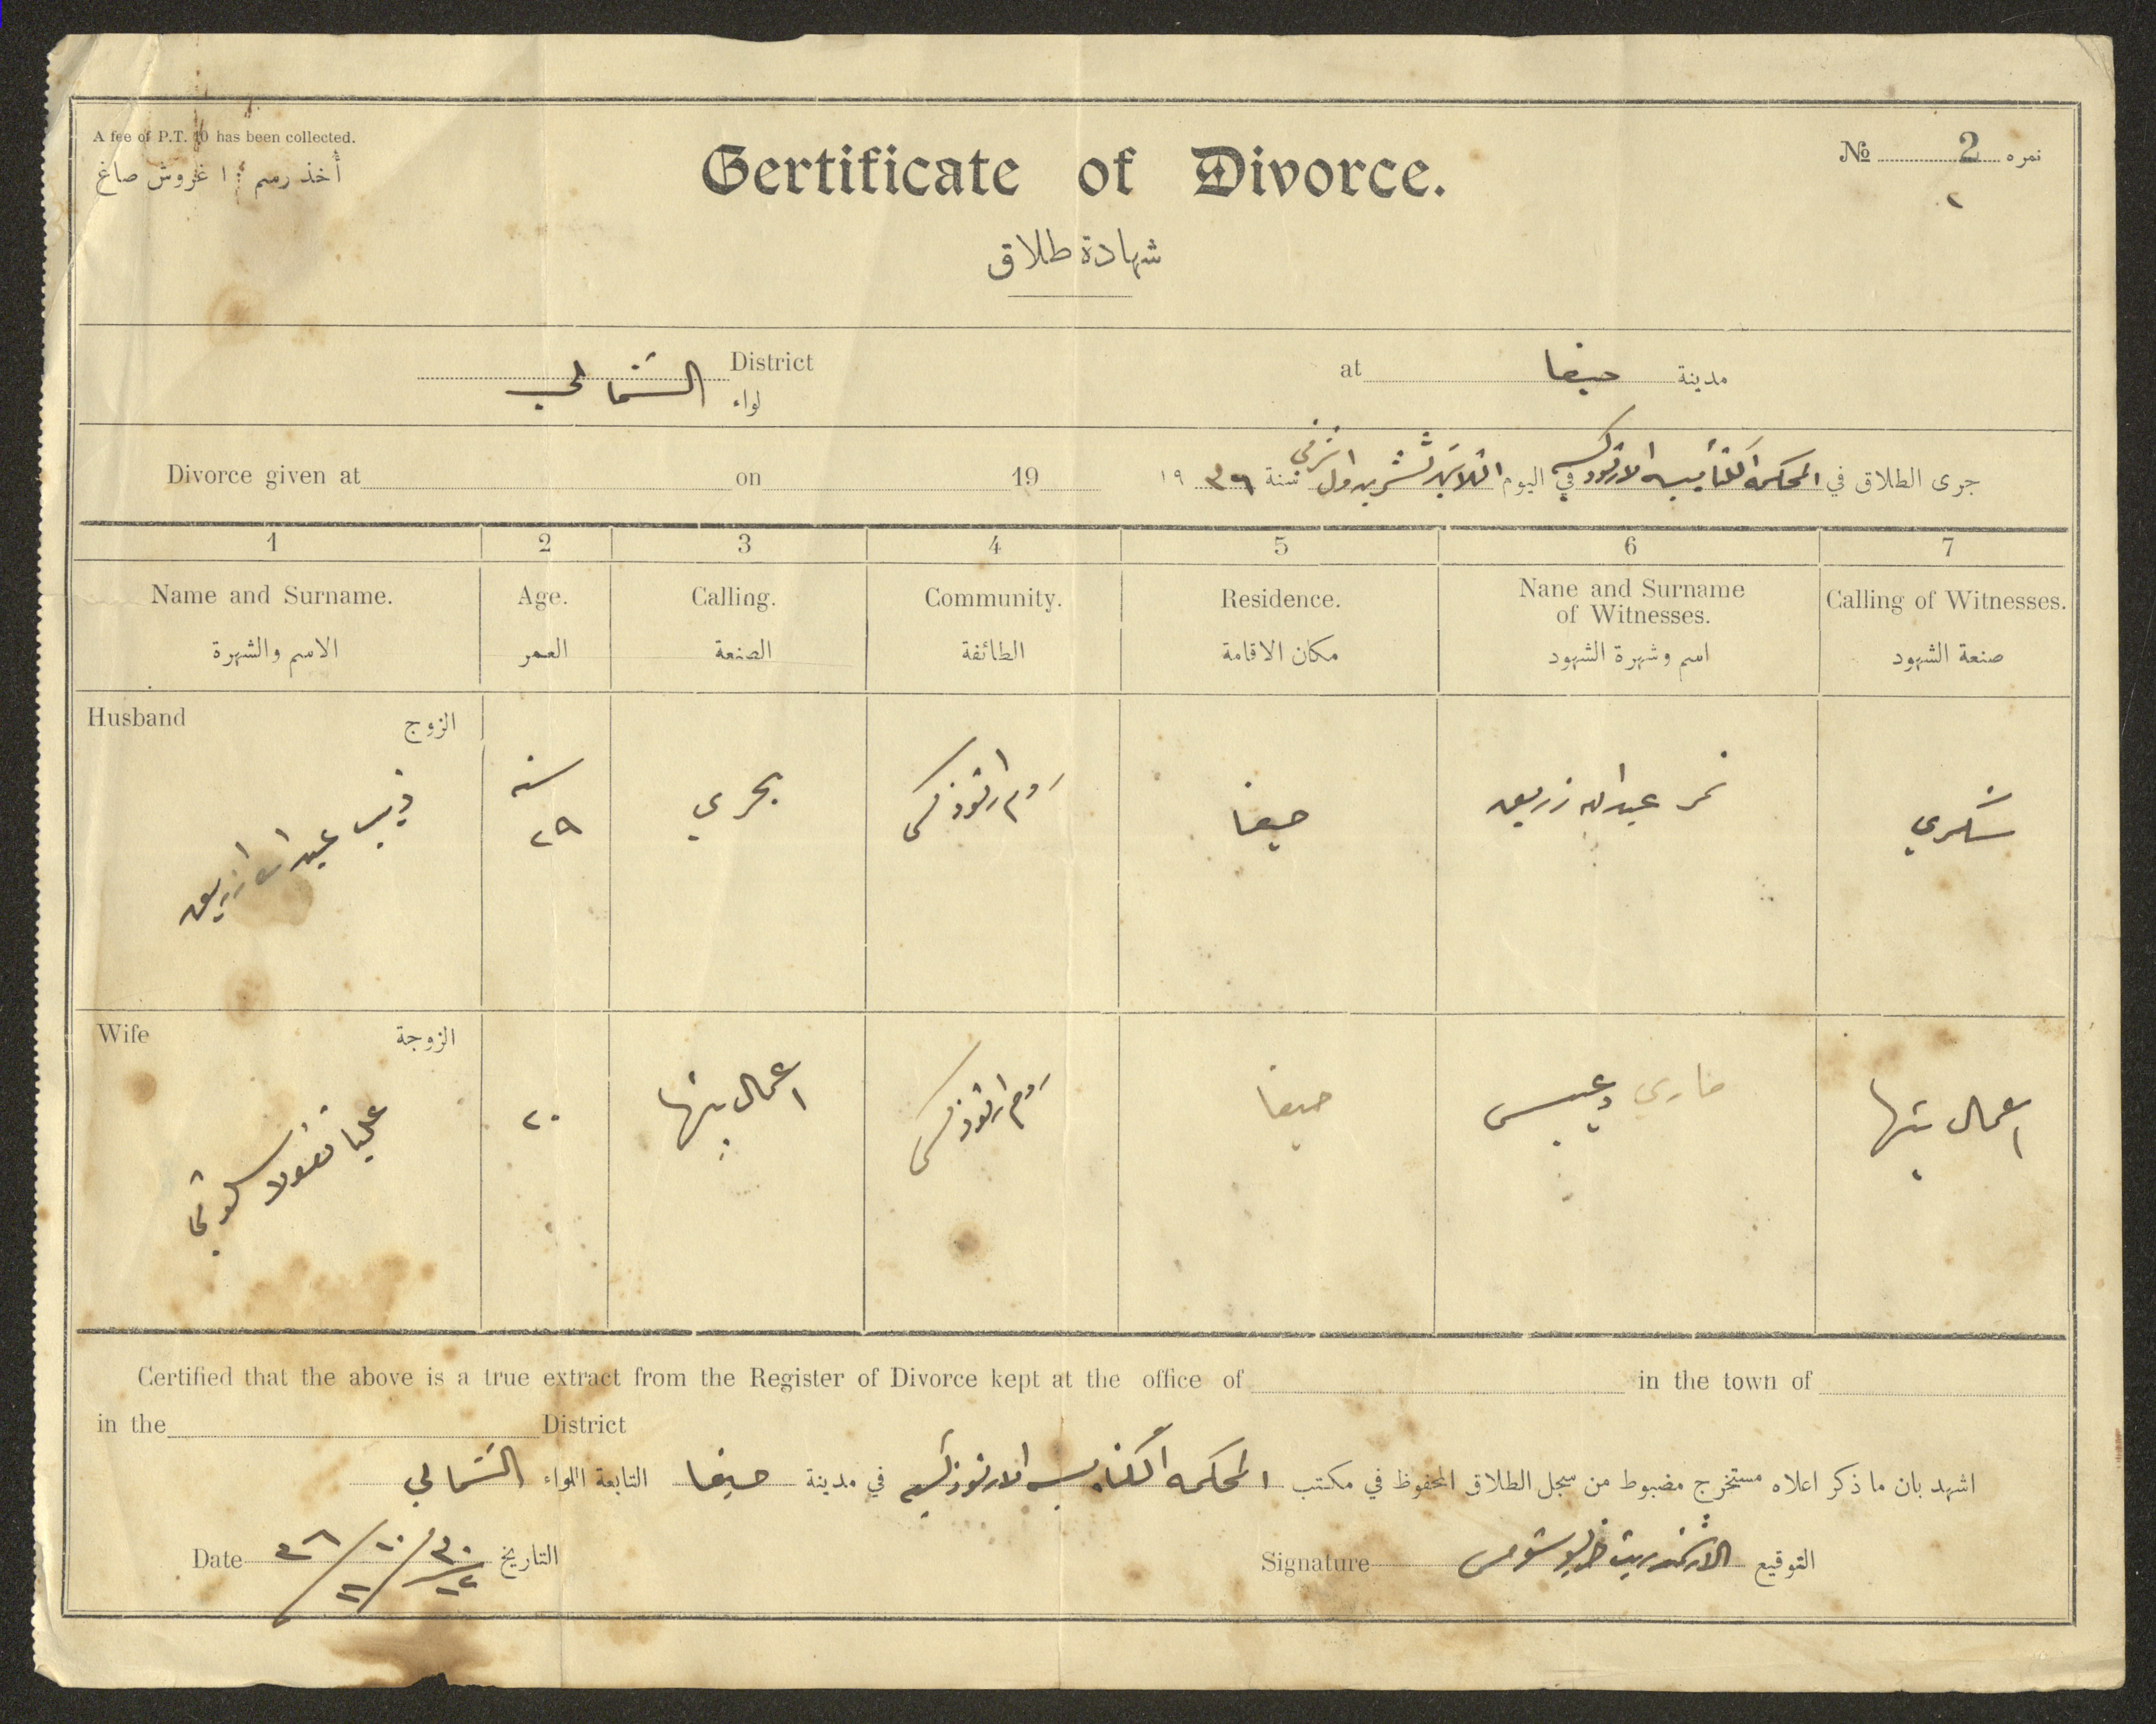 A fee of P.T. 10 has been collected.
أخذ رسم ١٠ غروش صاغ
Certificate of Divorce.
شهادة طلاق
№ 2 نمره
٢
District الشمالي لواء
at حيفا مدينة
Divorce given at on 19
جرى الطلاق في المحكمه الكنائسيه الارثوذكسيه في اليوم الثلاثين تشرين اول شرقي سنة ١٩٣٦
1 2 3 4 5 6 7
Name and Surname. Age. Calling. Community. Residence. Nane and Surname of Witnesses. Calling of Witnesses.
الاسم والشهرة العمر الصنعة الطائفة مكان الاقامة اسم وشهرة الشهود صنعة الشهود
Husband الزوج
ذيب عبدالله زريق
سنه
٢٩
بحري
روم ارثوذكس
حيفا
نمر عبدالله زريق
Wife الزوجة
عليا نقولا
٢٠
اعمال بيتها
روم ارثوذكس
حيفا
ماري
اعمال بيتها
Certified that the above is a true extract from the Register of Divorce kept at the office of in the town of
in the District
اشهد بان ما ذكر اعلاه مستخرج مضبوط من سجل الطلاق المحفوظ في مكتب المحكمه الكنائسيه الارثوذكسيه في مدينة حيفا التابعة اللواء الشمالي
Date ٣٦ / ١٠ / ٣٠ التاريخ
١١ / ١٢
Signature الارشمندريت التوقيع